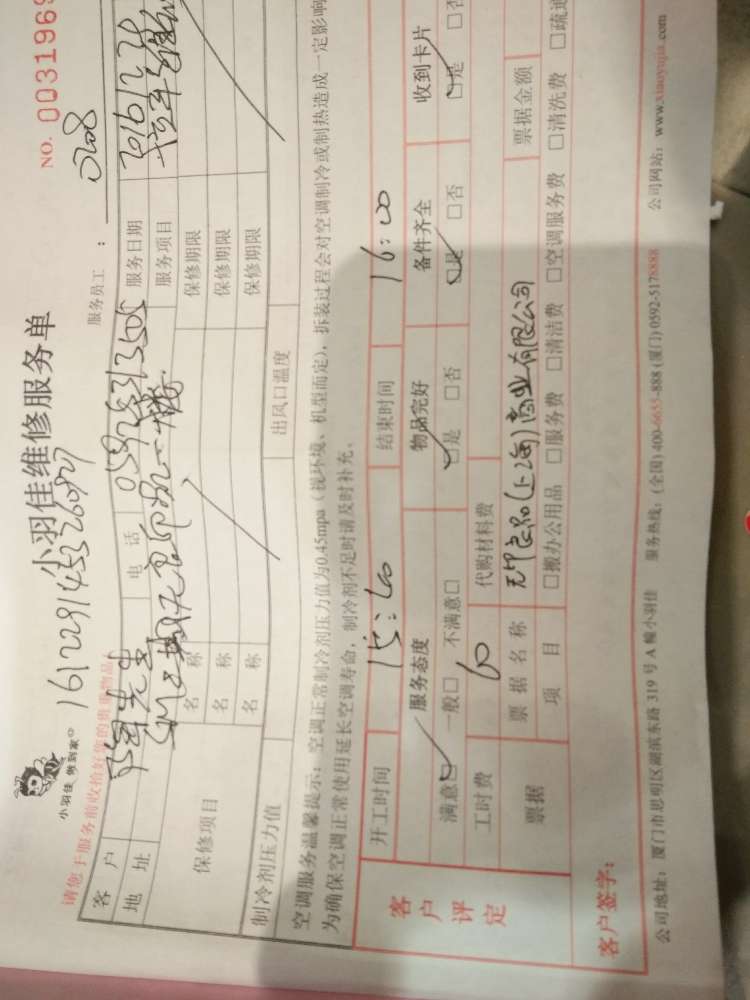 小羽佳 做到家
小羽佳维修服务单
NO. 0031969
161229145326087
0208
请您于服务前收拾好您的贵重物品
服务员工：
客户
先生
电话
服务日期
地址
服务项目
保修项目
名称
保修期限
名称
保修期限
名称
保修期限
制冷剂压力值
出风口温度
空调服务温馨提示：空调正常制冷剂压力值为0.45mpa（视环境、机型而定），拆装过程会对空调制冷或制热造成一定影响
为确保空调正常使用延长空调寿命，制冷剂不足时请及时补充。
客户评定
开工时间
15:00
结束时间
16:00
服务态度
物品完好
备件齐全
收到卡片
满意□ 一般□ 不满意□
□是 □否
□是 □否
□是 □否
工时费
60
代购材料费
票据
票据名称
无印良品(上海)商业有限公司
票据金额
项目
□搬办公用品 □服务费 □清洁费 □空调服务费 □清洗费 □疏通
客户签字：
公司地址：厦门市思明区湖滨东路 319 号 A 幢小羽佳 服务热线：(全国)400-6655-888 (厦门) 0592-5178888 公司网站：www.xiaoyujia.com